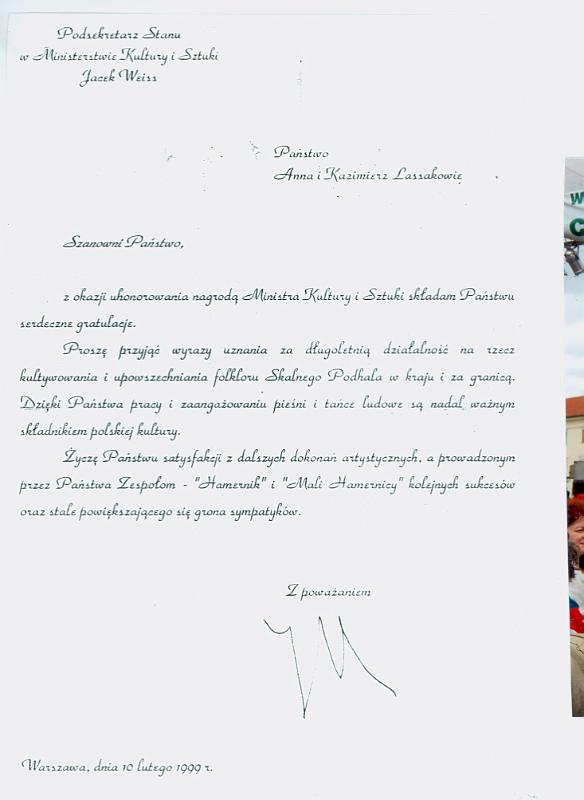 Podsekretarz Stanu
w Ministerstwie Kultury i Sztuki
Jacek Weiss
Państwo
Anna i Kazimierz Lassakowie
Szanowni Państwo,
z okazji uhonorowania nagrodą Ministra Kultury i Sztuki składam Państwu
serdeczne gratulacje.
Proszę przyjąć wyrazy uznania za długoletnią działalność na rzecz
kultywowania i upowszechniania folkloru Skalnego Podhala w kraju i za granicą.
Dzięki Państwa pracy i zaangażowaniu pieśni i tańce ludowe są nadal ważnym
składnikiem polskiej kultury.
Życzę Państwu satysfakcji z dalszych dokonań artystycznych, a prowadzonym
przez Państwa Zespołom - "Hamernik" i "Mali Hamernicy" kolejnych sukcesów
oraz stale powiększającego się grona sympatyków.
Z poważaniem
Warszawa, dnia 10 lutego 1999 r.